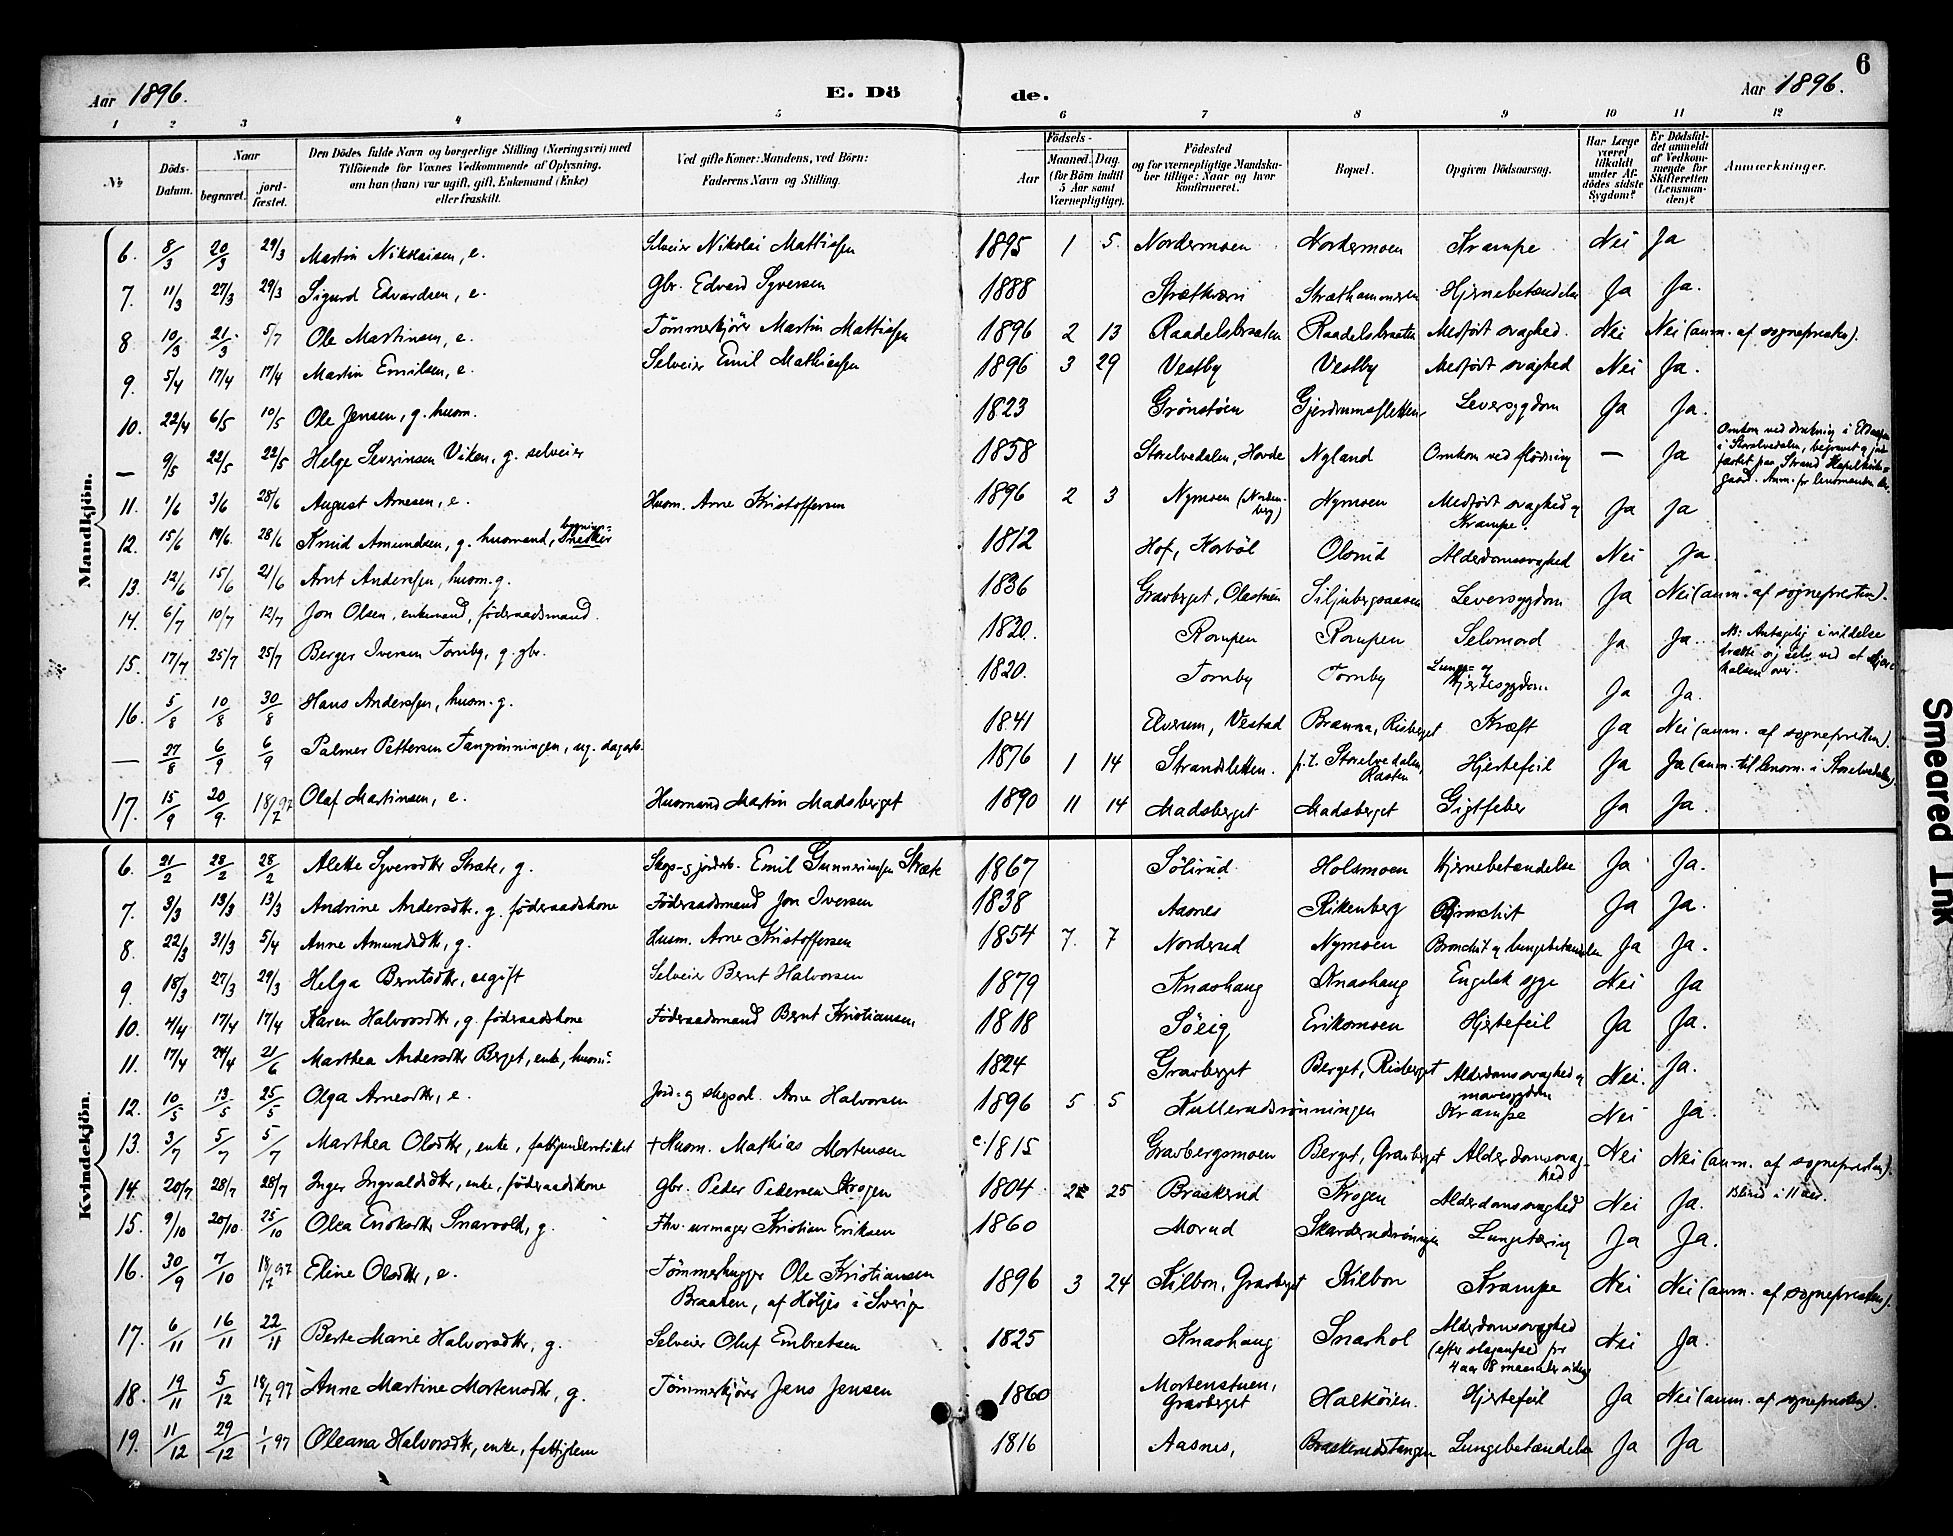 6
Aar 1896. E. Dö de. Aar 1896.
1 2 3 4 5 6 7 8 9 10 11 12
№ Döds-Datum. Naar begravet. jord-fæstet. Den Dödes fulde Navn og borgerlige Stilling (Næringsvei) med Tilföiende for Voxnes Vedkommende af Oplysning, om han (hun) var ugift, gift, Enkemand (Enke) eller fraskilt. Ved gifte Koner: Mandens, ved Börn: Faderens Navn og Stilling. Födsels- Aar Maaned. Dag. (for Börn indtil 5 Aar samt Værnepligtige). Födested og for værnepligtige Mandska-ber tillige: Naar og hvor konfirmeret. Bopæl. Opgiven Dödsaarsag. Har Læge været tilkaldt under Af-dödes sidste Sygdom? Er Dödsfal-det anmeldt af Vedkom-mende for Skifteretten (Lensman-den)? Anmærkninger.
Mandkjön.
6. 8/3 20/3 29/3 Martin Nikolaisen, e. Selveier Nikolai Mattiassen 1895 1 5. Nordermoen Nordermoen Krampe Nei Ja
7. 11/3 27/3 29/3 Sigurd Edvardsen, e. Gbr. Edvard Syversen 1888 Strætkværn Stræthammeren Hjernebetændelse Ja Ja.
8 10/3 21/3 5/7 Ole Martinsen, e. Tömmerkjörer Martin Mattiassen 1896 2 13 Raadelsbraaten Raadelsbraaten Medfödt svaghed. Nei Nei (anm. af sognepresten).
9. 5/4 17/4 17/4 Martin Emilsen, e. Selveier Emil Mathiassen 1896 3 29 Vestby Vestby Medfödt svaghed Nei Ja.
10. 22/4 6/5 10/5 Ole Jensen, g. husm. 1823 Grönstöen Gjerdrumsfletten Leversygdom Ja Ja.
— 9/5 22/5 22/5 Helge Severinsen Viken, g. selveier 1858 Storelvedalen, Hovde Nyland Omkom ved flödning — Ja Omkom ved drukning i i Storelvedalen, begravet og jord-fæstet paa Strand Kapelkirke-gaard. Anm. for lensmanden der.
11. 1/6 3/6 28/6 August Arnesen, e. Husm. Arne Kristoffersen 1896 2 3 Nymoen (Norden-berg) Nymoen Medfödt svaghed og Krampe. Ja Ja
12. 15/6 19/6. 28/6 Knud Amundsen, g. husmand, bygnings=snedker 1812 Hof, Korböl Olsrud Alderdomssvaghed Nei Ja.
13. 12/6 15/6 21/6 Arnt Anderssen, husm. g. 1836 Gravberget, Olastuen Siljubergsaasen Leversygdom Ja Nei (anm. af sognepresten).
14. 6/7 10/7 12/7 Jon Olsen, enkemand, föderaadsmand. 1820. Rompen Rompen Selvmord Ja Ja. NB: Antagelig i vildelse dræbte sig selv ved at skjære halsen over.
15. 17/7 25/7 25/7 Berger Iversen Tornby, g. gbr. 1820. Tornby Tornby Lunge= og Hjertesygdom Ja Ja.
16. 5/8 10/8 30/8 Hans Anderssen, husm. g. 1841 Elverum, Vestad Branna, Risberget Kræft Ja Nei (anm. af sognepresten).
— 27/8 6/9 6/9 Palmer Pettersen Tangrönningen, ug. dagarb. 1876 1 14 Strandsletten. p.t. Storelvedalen, Rasten Hjertefeil Ja Ja (anm. til lensm. i Storelvedalen).
17. 15/9 20/9. 18/7 97 Olaf Martinsen, e. Husmand Martin Madsberget 1890 11 14 Madsberget Madsberget Gigtfeber Ja Ja.
Kvindekjön.
6. 21/2 28/2 28/2 Alette Syversdtr Stræte, g. Skog- og jordarb. Emil Gunneriussen Stræte 1867 Sölirud Holsmoen Hjernebetændelse Ja Ja.
7. 3/3 13/3 13/3 Andrine Andersdtr. g. föderaadskone Föderaadsmand Jon Iversen 1838 Aasnes Rikenberg Bronchit Ja Ja.
8. 22/3 31/3 5/4 Anne Amundsdtr, g. Husm. Arne Kristoffersen 1854 7. 7 Norderud Nymoen Bronchit og lungebetændelse Ja Ja.
9. 18/3 27/3 29/3 Helga Berntsdtr, ugift Selveier Bernt Halvorsen 1879 Knashaug Knashaug Engelsk syge Nei Ja
10. 4/4 17/4 17/4 Karen Halvorsdtr, g. föderaadskone Föderaadsmand Bernt Kristiansen, 1818 Söeig Eriksmoen Hjertefeil Ja Ja.
11. 17/4 24/4 21/6 Marthea Andersdtr Berget, enke, husm: 1824 Gravberget Berget, Risberget Alderdomssvaghed og mavesygdom Nei. Ja.
12. 10/5 13/5 25/5 Olga Arnesdtr, e. Jord- og skogsarb. Arne Halvorsen 1896 5 5 Kullerudsrönningen Krampe Nei Ja.
13. 3/7 5/7 5/7 Marthea Olsdtr, enke, fattigunderstöttet + Husm. Mathias Mortensen c. 1815 Gravbergsmoen Berget, Gravberget Alderdomssvag-hed Nei Nei (anm. af sognepresten).
14. 20/7 28/7 28/7 Inger Ingvaldsdtr, enke, föderaadskone Gbr. Peder Pedersen Krogen 1804 25 Braskerud Krogen Alderdomssvaghed Nei Ja. Blind i 11 aar.
15. 9/10 20/10. 25/10 Olea Enoksdtr Snarvold, g. Fhv. urmager Kristian Eriksen 1860 Morud Skarderudsröningen Lungetæring Ja Ja.
16. 30/9 7/10 18/7 97 Eline Olsdtr, e. Tömmerhugger Ole Kristiansen Braaten, af Höljes i Sverige 1896 3 24 Kilbon, Gravberget Kilbon Krampe Nei Nei (anm. af sognepresten).
17. 6/11 16/11 22/11 Berte Marie Halvorsdtr, g. Selveier Oluf Embretsen 1825 Knashaug Snarhol Alderdomssvaghed (efter slaganfald for 4 aar 8 maaneder siden) Nei Ja.
18. 19/11 5/12 18/7 97 Anne Martine Mortensdtr, g. Tömmerkjörer Jens Jensen 1860 Mortenstuen, Gravberget Halköien. Hjertefeil Ja Nei (anm. af sognepresten).
19. 11/12 29/12 1/1 97 Oleana Halvorsdtr, enke, fattiglem 1816 Aasnes, Braskerudstangen Lungebetændelse Ja Ja
Smeared Ink